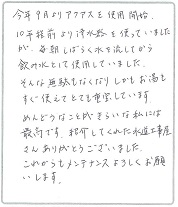 今年9月よりアクアスを使用開始。
10年程前より浄水器を使っていました
が、毎朝しばらく水を流してから
飲み水として使用していました。
そんな無駄もなくなりしかもお湯も
すぐ使えてとても重宝しています
めんどうなことがきらいな私には
最高です。紹介してくれた水道工事屋
さんありがとうございました。
これからもメンテナンスよろしくお願
いします。